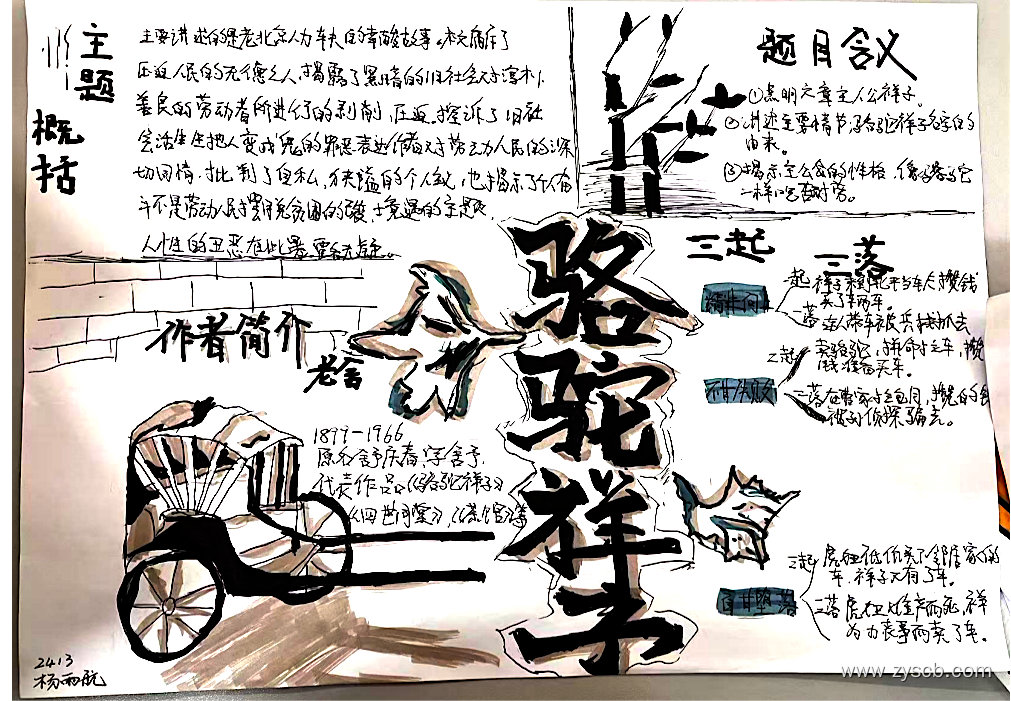 主题
概括
主要讲述的是老北京人力车夫的辛酸故事。
压迫人民的无德之人,揭露了黑暗的旧社会对淳朴、
善良的劳动者所进行的剥削、压迫,控诉了旧社
会活生生地把人变成鬼的罪恶表达作者对劳动人民的深
切同情,批判了自私、狭隘的个人主义,也揭示了个人奋
斗不是劳动人民摆脱贫困的
人性的丑恶在此暴露无
题目含义
①点明文章主人公祥子。
②讲述主要情节,骆驼祥子名字的
由来。
③揭示主人公的性格,像骆驼
一样吃苦耐劳。
骆驼祥子
作者简介
老舍
1899-1966
原名舒庆春,字舍予,
代表作品《骆驼祥子》
《四世同堂》,《茶馆》等
三起
三落
精进向上
一起
祥子
攒钱
买了车。
一落
连人带车被兵抓去
不甘失败
二起
卖骆驼,拼命拉车,攒
钱准备买车。
二落
在曹家拉包月,
被孙侦探骗去。
自甘堕落
三起
虎妞低价买了邻居家的
车,祥子又有了车。
三落
虎妞难产而死,祥
为办丧事而卖了车。
2413
www.zyscb.com